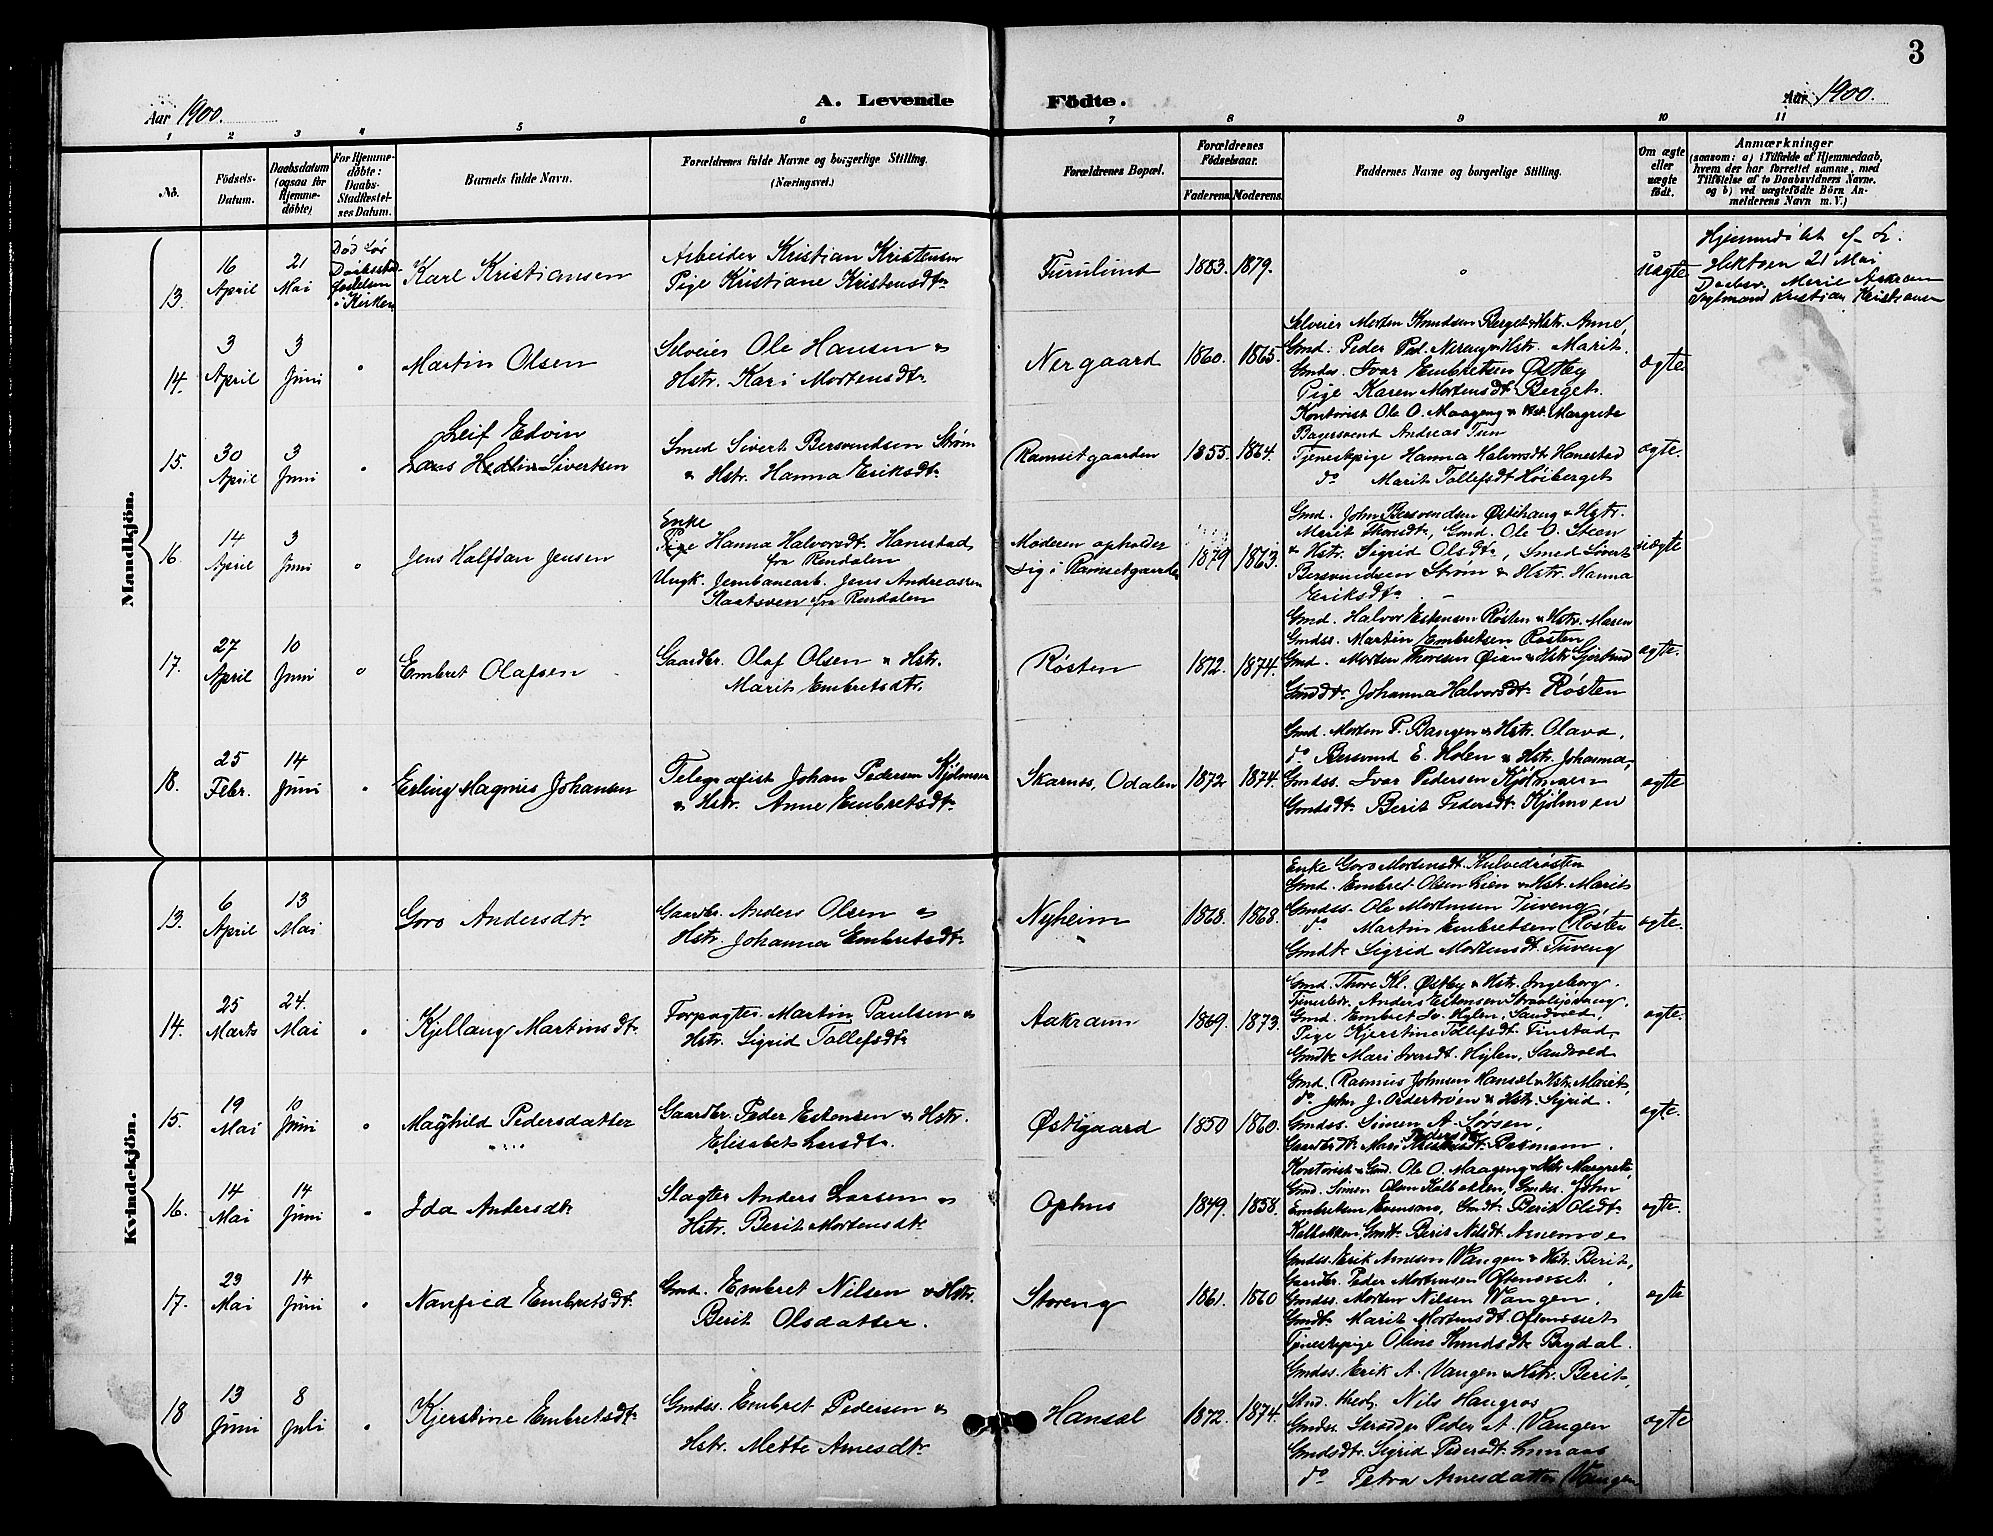 3
Aar 1900.
A. Levende Födte.
Aar 1900.
1 2 3 4 5 6 7 8 9 10 11
No.
Födsels-Datum.
Daabsdatum (ogsaa for Hjemme-döbte)
For Hjemme-döbte: Daabs-Stadfæstel-ses Datum.
Barnets fulde Navn.
Forældrenes fulde Navne og borgerlige Stilling. (Næringsvei.)
Forældrenes Bopæl.
Forældrenes Födselsaar.
Faderens. Moderens.
Faddernes Navne og borgerlige Stilling.
Om ægte eller uægte födt.
Anmærkninger
(saasom: a) i Tilfælde af Hjemmedaab, hvem der har forrettet samme, med Tilföielse af to Daabsvidners Navne. og b) ved uægtefödte Börn Anmelderens Navn m. V.)
Mandkjön.
13. 16 April 21 Mai Død før Daabsstadfestelsen i Kirken Karl Kristiansen
Arbeider Kristian Kristensen
Pige Kristiane Kristensdtr
Furulund 1883. 1879. uægte
Hjemmedøbt af L.
21 Mai
Daabsv. Marie Aakrann
Kristian Kristiansen
14. 3 April 3 Juni Martin Olsen
Selveier Ole Hansen &
Hstr. Kari Mortensdtr.
Nergaard 1860. 1865.
Selveier Morten Knudsen Berget & Hstr. Anne,
Gmd. Peder Ped. Nereng & Hstr. Marit.
Gmdss. Ivar Embretsen Østby
Pige Karen Mortensdt. Berget.
ægte.
15. 30 April 3 Juni Leif Edvin
Sivertsen
Smed Sivert Bersvendsen Strøm
& Hstr. Hanna Eriksdtr.
Ramsetgaarden 1855. 1864.
Kontorist Ole O. Maageng & Hst. Margrete
Bagersvend Andreas
Tjenestpige Hanna Halvorsdt Hanestad
do Marit Tollefsdt Høiberget
ægte.
16. 14 April 3 Juni Jens Halfdan Jensen
Enke
Pige Hanna Halvorsdt. Hanestad
fra Rendalen
Ungk. Jernbanearb. Jens Andreassen
fra Rendalen
Moderen opholder
sig i Ramsetgaarden 1879 1863.
Gmd. John Bersvendsen Østihaug & Hstr.
Marit Thoresdt., Gmd. Ole O. Steen
& Hstr. Sigrid Olsdtr, Smed Sivert
Bersvendsen Strøm & Hstr. Hanna
Eriksdtr.
uægte
17. 27 April 10 Juni Embret Olafsen
Gaardbr. Olaf Olsen & Hstr.
Marit Embretsdtr.
Røsten 1872. 1874.
Gmd. Halvor Estensen Røsten & Hstr. Maren
Gmdss. Martin Embretsen Røsten
Gmd. Morten Thoresen Øian & Hstr Gjertrud
Gmdtr. Johanna Halvorsdt. Røsten
ægte.
18. 25 Febr. 14 Juni Erling Magnus Johansen
Telegrafist Johan Pedersen Kjølmoen
& Hstr. Anne Embretsdtr.
Skarnes, Odalen 1872 1874.
Gmd. Morten P. Bangen & Hstr. Olava,
do Bersvend E. Holen & Hstr. Johanna,
Gmdss. Ivar Pedersen Kjølmoen
Gmdsdt. Berit Pedersdt. Kjølmoen
ægte
Kvindekjön.
13. 6 April 13 Mai Goro Andersdtr
Gaardbr. Anders Olsen &
Hstr. Johanna Embretsdtr.
Nyheim 1868. 1868.
Enke Goro Mortensdt. Kulvedrøsten
Gmd. Embret Olsen Lien & Hst. Marit
Gmdss. Ole Mortensen Tuveng
do Martin Embretsen Røsten
Gmdtr Sigrid Mortensdt. Tuveng
ægte.
14. 25 Marts 24. Mai Kjellaug Martinsdtr.
Forpagter Martin Paulsen &
Hstr. Sigrid Tollefsdtr.
Aakrann 1869. 1873.
Gmd. Thore Kl. Østby & Hstr. Ingeborg.
Anders Estensen
Gmd. Embret Iv. Hylen, Sandvold,
Pige Kjerstine Tollefsdt. Finstad,
Gmdtr Mari Iversdt. Hylen, Sandvold
ægte.
15. 19 Mai 10 Juni Maghild Pedersdatter
Gaardbr. Peder Estensen & Hstr.
Elisabet Larsdtr.
Østigaard 1850 1860.
Gmd. Rasmus Johnsen Hansæl & Hstr. Marit,
do. John J. & Hstr. Sigrid.
Gmdss. Simen A. Sørsen,
Gaardbdt. Mari Pedersdt. Bakmoen.
ægte.
16. 14 Mai 14 Juni Ida Andersdtr
Slagter Anders Larsen &
Hstr. Berit Mortensdtr.
Ophus 1849. 1858.
Kontorist & Gmd. Ole O. Maageng & Hstr Margrete,
Gmd. Simen Olsen Kolbækken, Gmdss. John
Embretsen Evensmo, Gmdt. Berit Olsdt.
Kolbækken, Gmdt. Berit Nilsdt. Arnemo
ægte.
17. 23 Mai 14 Juni Nanfrid Embretsdt.
Gmd. Embret Nilsen & Hstr.
Berit Olsdatter.
Storeng 1861. 1860
Gmdss. Erik Arnesen Vangen & Hstr. Berit,
Gaardbr. Peder Mortensen
Gmdss. Morten Nilsen Vangen,
Gmdt. Marit Mortensdt.
Tjenestpige Oline Knudsdt. Brydal.
ægte
18 13 Juni 8 Juli Kjerstine Embretsdtr
Gmdss. Embret Pedersen &
Hstr. Mette Arnesdtr.
Hansæl 1872. 1874.
Gmdss. Erik A. Vangen & Hstr. Berit,
Stud. theol. Nils Haugros
Gmdss. Skrædder Peder A. Vangen
Gmdsdtr. Sigrid Pedersdt.
do Petra Arnesdatter Vangen
ægte